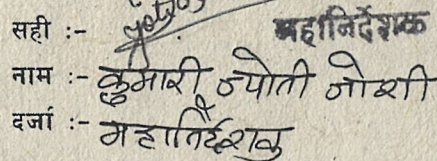 सही :- महानिर्देशक
नाम :- कुमारी ज्योती जोशी
दर्जा :- महानिर्देशक